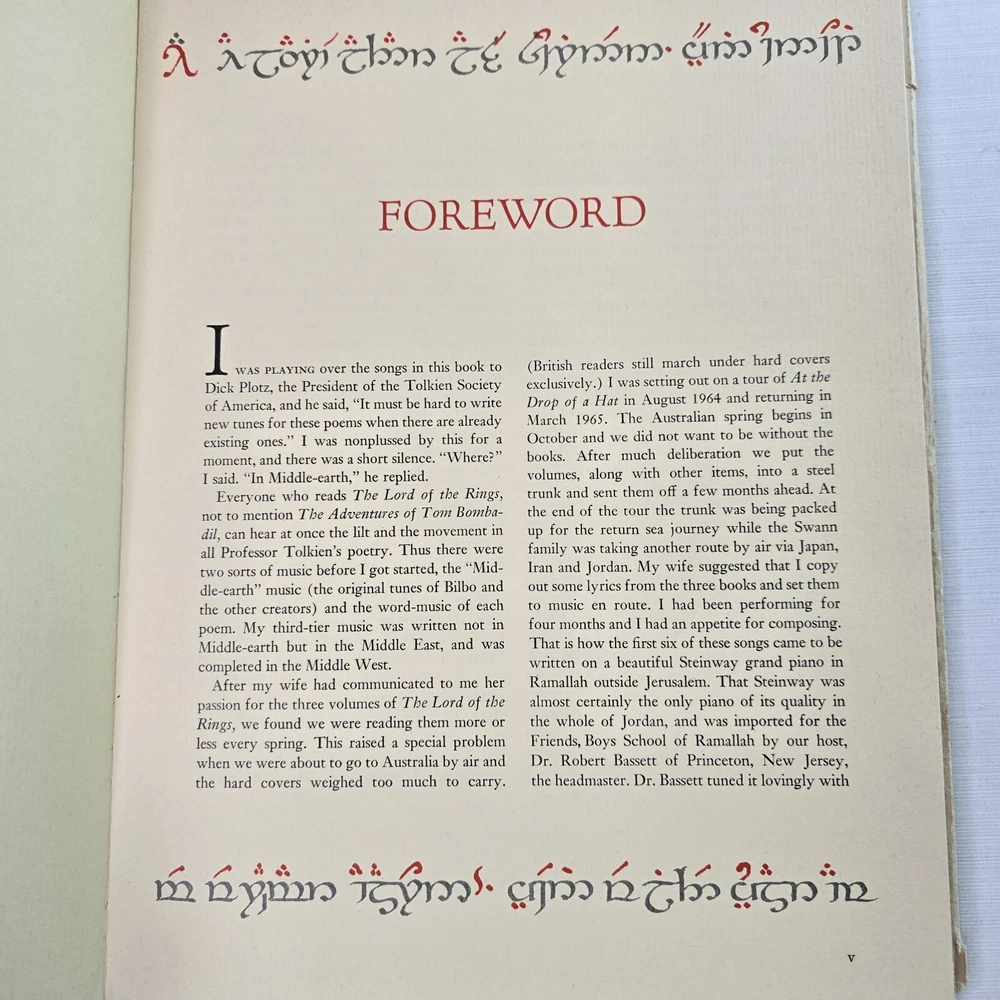 FOREWORD
I WAS PLAYING over the songs in this book to
Dick Plotz, the President of the Tolkien Society
of America, and he said, “It must be hard to write
new tunes for these poems when there are already
existing ones.” I was nonplussed by this for a
moment, and there was a short silence. “Where?”
I said. “In Middle-earth,” he replied.
Everyone who reads The Lord of the Rings,
not to mention The Adventures of Tom Bomba-
dil, can hear at once the lilt and the movement in
all Professor Tolkien’s poetry. Thus there were
two sorts of music before I got started, the “Mid-
dle-earth” music (the original tunes of Bilbo and
the other creators) and the word-music of each
poem. My third-tier music was written not in
Middle-earth but in the Middle East, and was
completed in the Middle West.
After my wife had communicated to me her
passion for the three volumes of The Lord of the
Rings, we found we were reading them more or
less every spring. This raised a special problem
when we were about to go to Australia by air and
the hard covers weighed too much to carry.
(British readers still march under hard covers
exclusively.) I was setting out on a tour of At the
Drop of a Hat in August 1964 and returning in
March 1965. The Australian spring begins in
October and we did not want to be without the
books. After much deliberation we put the
volumes, along with other items, into a steel
trunk and sent them off a few months ahead. At
the end of the tour the trunk was being packed
up for the return sea journey while the Swann
family was taking another route by air via Japan,
Iran and Jordan. My wife suggested that I copy
out some lyrics from the three books and set them
to music en route. I had been performing for
four months and I had an appetite for composing.
That is how the first six of these songs came to be
written on a beautiful Steinway grand piano in
Ramallah outside Jerusalem. That Steinway was
almost certainly the only piano of its quality in
the whole of Jordan, and was imported for the
Friends, Boys School of Ramallah by our host,
Dr. Robert Bassett of Princeton, New Jersey,
the headmaster. Dr. Bassett tuned it lovingly with
v